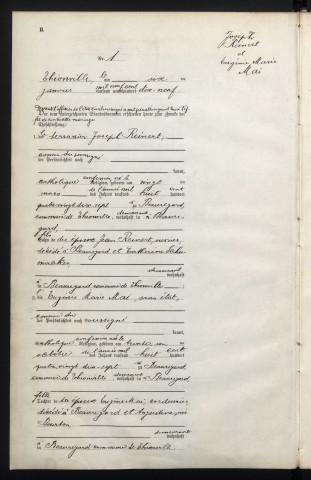 B.
Joseph
Reinert
et
Eugénie Marie
Mai
Nr. 1
Thionville le six
janvier mil neuf cent dix-neuf
1. Le serrurier Joseph Reinert,
der Persönlichkeit nach
kannt,
catholique Religion, geboren am vingt
mars de l'année mil des Jahres tausend huit cent
quatre vingt dix sept à Beauregard,
commune de Thionville, demeurant à Beaure-
gard,
fils
Sohn des époux Jean Reinert, ouvrier,
décédé à Beauregard et Catherine
demeurant
wohnhaft
à Beauregard commune de Thionville
2. la Eugénie Marie Mai, sans état,
der Persönlichkeit nach
kannt,
catholique Religion, geboren am trente
octobre de l'année mil des Jahres tausend huit cent hundert
quatre vingt dix sept à Beauregard
commune de Thionville, demeurant wohnhaft à Beauregard
fille
Tochter des époux Eugène Mai, cordonnier
décédé à Beauregard et Augustine, née
demeurant
wohnhaft
à Beauregard commune de Thionville.